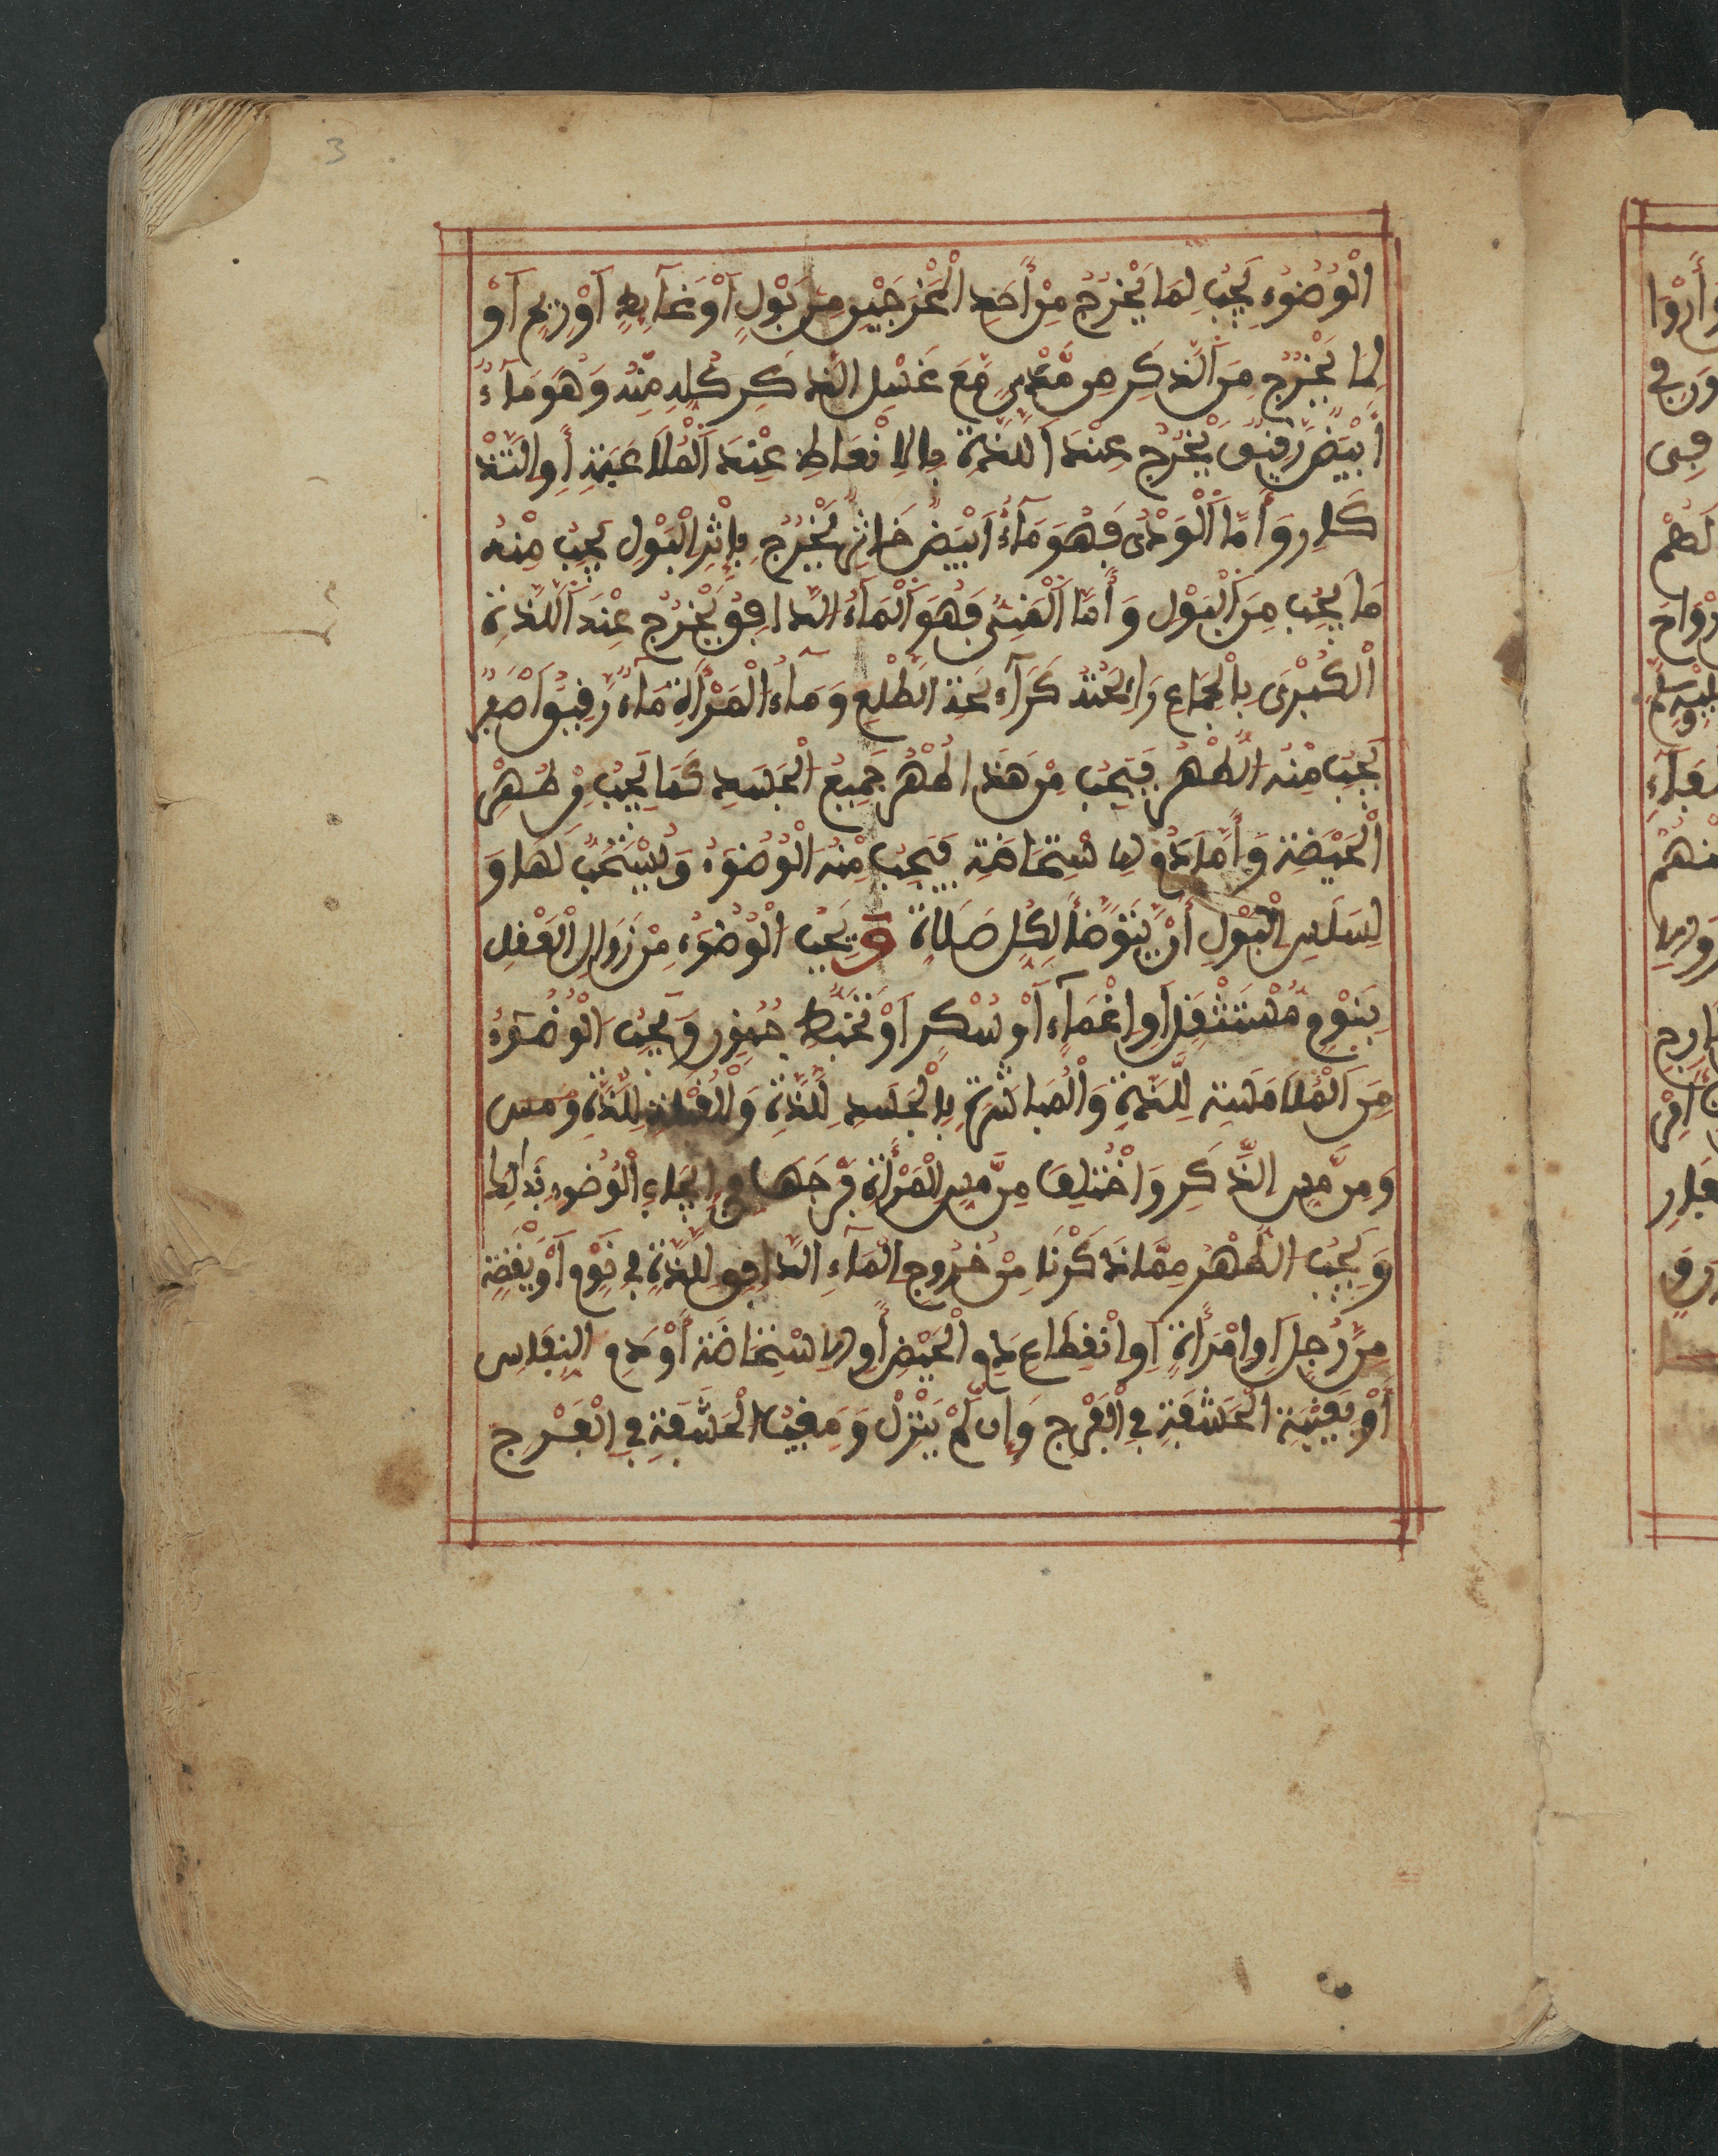 3
الْوُضُوءُ يَجِبُ لِمَا يَخْرُجُ مِنْ أَحَدِ الْمَخْرَجَيْنِ مِنْ بَوْلٍ أَوْ غَآئِطٍ أَوْ رِيحٍ أَوْ
لِمَا يَخْرُجُ مِنَ الذَّكَرِ مِن مَّذْيٍ مَّعَ غَسْلِ الذَّكَرِ كُلِّهِ مِنْهُ وَهُوَ مَآءٌ
أَبْيَضُ رَقِيقٌ يَخْرُجُ عِنْدَ اللَّذَّةِ بِالِانْعَاظِ عِنْدَ الْمُلَاعَبَةِ أَوِ التَّذْ
كَارِ وَأَمَّا الْوَدْيُ فَهُوَ مَآءٌ أَبْيَضُ خَاثِرٌ يَخْرُجُ بِإِثْرِ الْبَوْلِ يَجِبُ مِنْهُ
مَا يَجِبُ مِنَ الْبَوْلِ وَأَمَّا الْمَنِيُّ فَهُوَ الْمَآءُ الدَّافِقُ يَخْرُجُ عِنْدَ اللَّذَّةِ
الْكُبْرَى بِالْجِمَاعِ رَائِحَتُهُ كَرَآئِحَةِ الطَّلْعِ وَمَآءُ الْمَرْأَةِ مَآءٌ رَقِيقٌ أَصْفَرُ
يَجِبُ مِنْهُ الطُّهْرُ فَيَجِبُ مِنْ هَذَا طُهْرُ جَمِيعِ الْجَسَدِ كَمَا يَجِبُ مِنْ طُهْرِ
الْحَيْضَةِ وَأَمَّا دَمُ الِاسْتِحَاضَةِ فَيَجِبُ مِنْهُ الْوُضُوءُ وَيُسْتَحَبُّ لَهَا وَ
لِسَلِسِ الْبَوْلِ أَنْ يَتَوَضَّأَ لِكُلِّ صَلَاةٍ وَيَجِبُ الْوُضُوءُ مِنْ زَوَالِ الْعَقْلِ
بِنَوْمٍ مُسْتَثْقَلٍ أَوِ اغْمَآءٍ أَوْ سُكْرٍ أَوْ تَخَبُّطِ جُنُونٍ وَيَجِبُ الْوُضُوءُ
مِنَ الْمُلَامَسَةِ لِلَّذَّةِ وَالْمُبَاشَرَةِ بِالْجَسَدِ لِلَّذَّةِ وَالْقُبْلَةِ لِلَّذَّةِ وَمَس
وَمِن مَّسِّ الذَّكَرِ وَاخْتُلِفَ مِن مَّسِّ الْمَرْأَةِ فَرْجَهَا فِي إِيجَابِ الْوُضُوءِ بِذَالِكَ
وَيَجِبُ الطُّهْرُ مِمَّا ذَكَرْنَا مِنْ خُرُوجِ الْمَآءِ الدَّافِقِ لِلَّذَّةِ فِي نَوْمٍ أَوْ يَقَظَةٍ
مِن رَّجُلٍ أَوِ امْرَأَةٍ أَوِ انْقِطَاعِ دَمِ الْحَيْضِ أَوِ الِاسْتِحَاضَةِ أَوْ دَمِ النِّفَاسِ
أَوْ بِمَغِيبِ الْحَشَفَةِ فِي الْفَرْجِ وَإِن لَّمْ يَنْزِلْ وَمَغِيبُ الْحَشَفَةِ فِي الْفَرْجِ